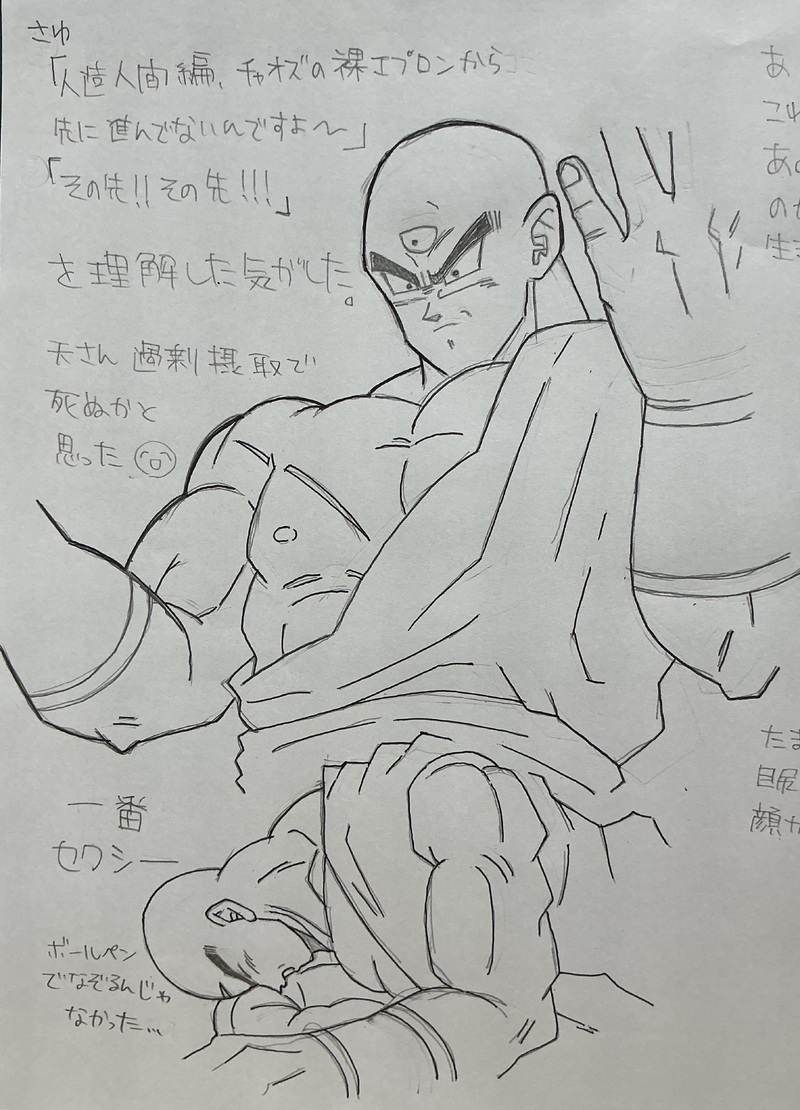 さゆ
「人造人間編、チャオズの裸エプロンから
先に進んでないんですよ〜」
「その先!!その先!!!」
を理解した気がした。
天さん過剰摂取で
死ぬかと
思った
一番
セクシー
ボールペン
でなぞるんじゃ
なかった…
あ
これ
あの
のか
生き
たま
目尻
顔か